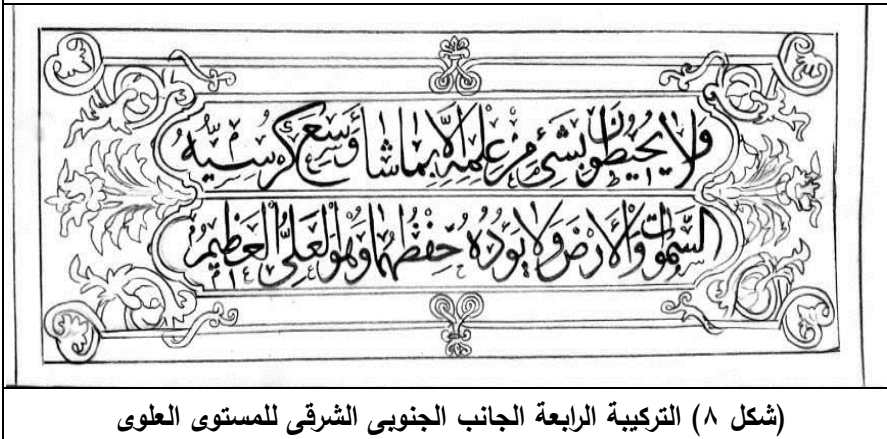 ولا يحيطون بشئ من علمه إلا بما شا وسع كرسيه
السموات والأرض ولا يوده حفظهما وهو العلي العظيم
(شكل ٨) التركيبة الرابعة الجانب الجنوبى الشرقى للمستوى العلوى